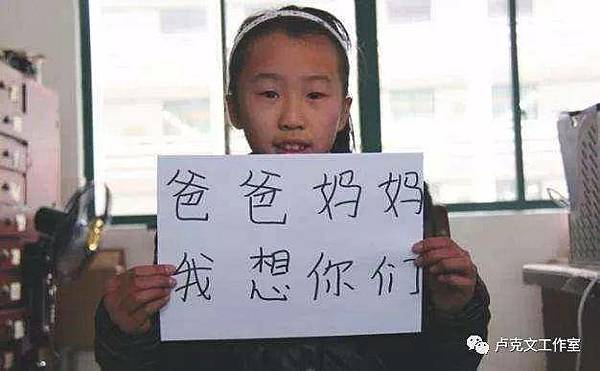 爸爸妈妈
我想你们
卢克文工作室